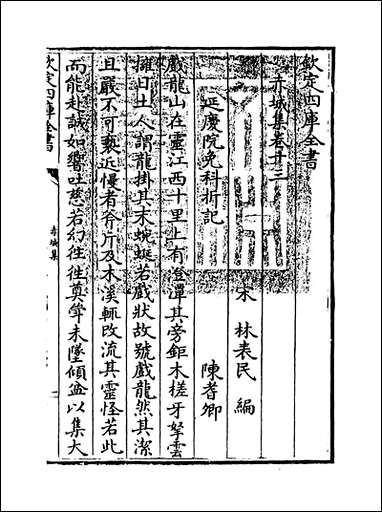 欽定四庫全書
赤城集卷十三
宋 林表民 編
延慶院免科折記
陳耆卿
戲龍山在靈江西十里上有澄潭其旁鉅木槎牙拏雲
擁日土人謂龍掛其末蜿蜒若戲狀故號戲龍然其潔
且嚴不可褻近慢者斧斤及木溪輒改流其靈怪若此
而能赴誠如響吐慈若幻往往奠斝未墜傾盆以集大
欽定四庫全書
赤城集